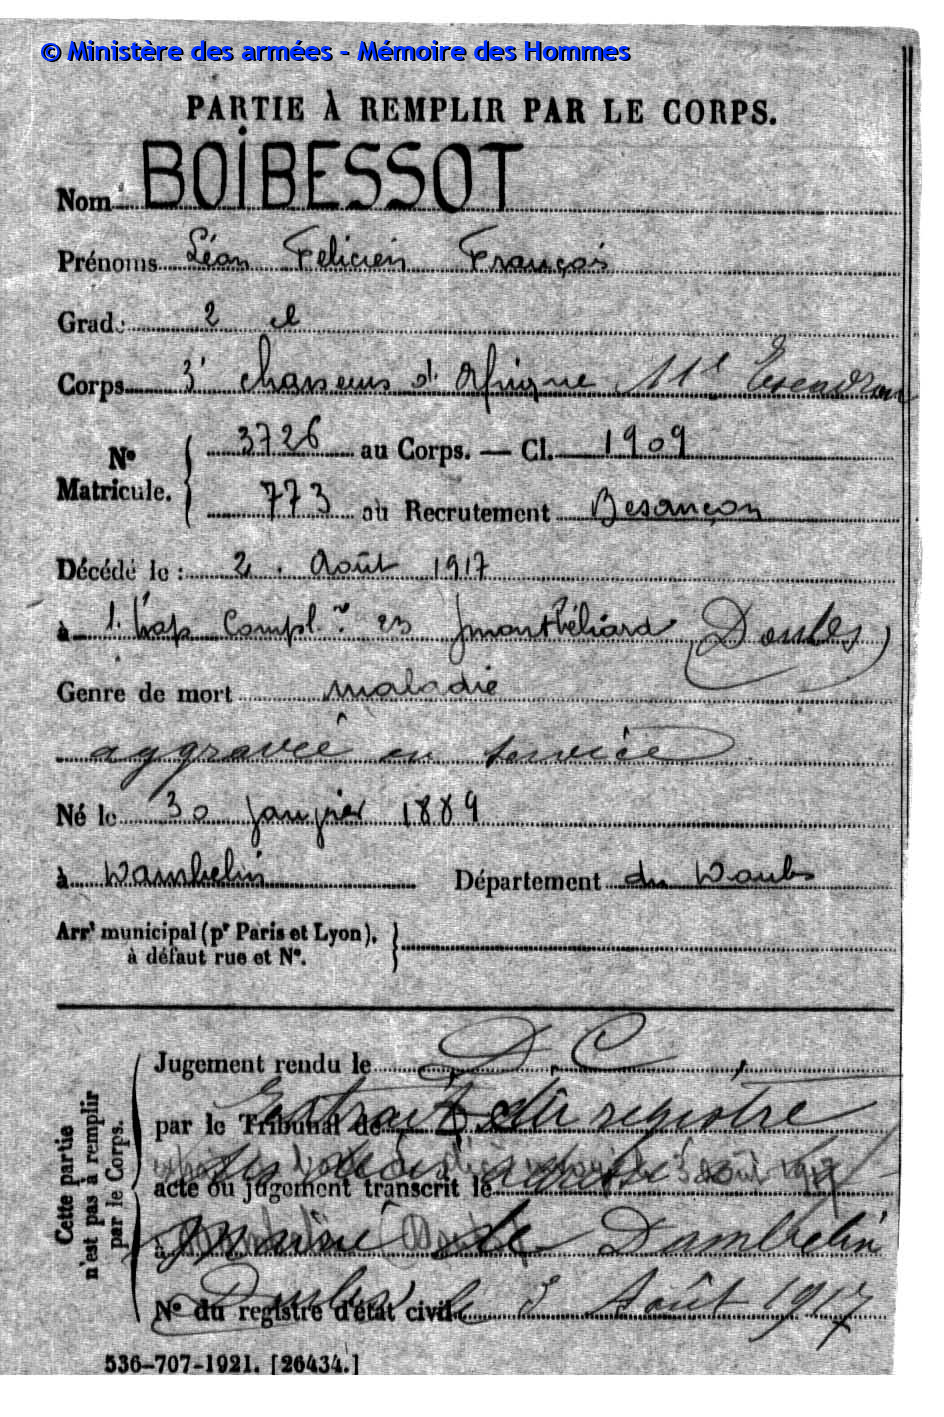 © Ministère des armées - Mémoire des Hommes
PARTIE À REMPLIR PAR LE CORPS.
Nom BOIBESSOT
Prénoms Léon Félicien François
Grade 2 cl
Corps 3e chasseurs d'Afrique 11e Escadron
No Matricule. 3726 au Corps. — Cl. 1909
773 au Recrutement Besançon
Décédé le : 2. Août 1917
à l'hôp Complre 23 Montbéliard (Doubs)
Genre de mort maladie
aggravée en service
Né le 30 janvier 1889
à Dambelin Département du Doubs
Arrt municipal (pr Paris et Lyon),
à défaut rue et No.
Cette partie
n'est pas à remplir
par le Corps.
Jugement rendu le D.C.
par le Tribunal de Extrait du registre
acte ou jugement transcrit le 3 août 1917
à de Dambelin
No du registre d'état civil Doubs le 3 Août 1917
536-707-1921. [26434.]